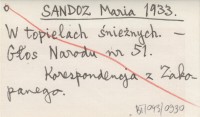 SANDOZ Maria 1933.
W topielach śnieżnych. -
Głos Narodu nr 51.
Korespondencja z Zako-
panego.